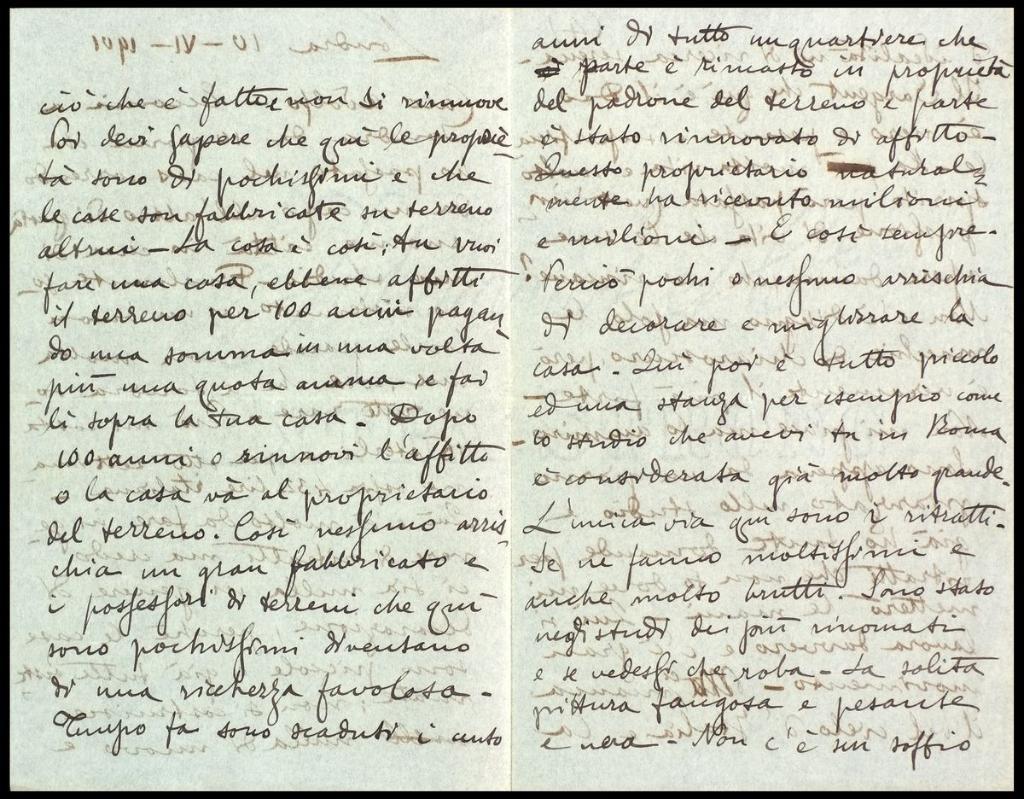 ciò che è fatto, e non si rinnuove
Poi devi sapere che qui le proprie-
tà sono di pochissimi e che
le case son fabbricate su terreno
altrui – La cosa è così; tu vuoi
fare una casa, ebbene affitti
il terreno per 100 anni pagan
do una somma in una volta
più una quota annua e fai
lì sopra la tua casa – Dopo
100 anni o rinnovi l'affitto
o la casa và al proprietario
del terreno. Così nessuno arris
chia un gran fabbricato e
i possessori di terreni che quì
sono pochissimi diventano
di una ricchezza favolosa –
Tempo fa sono scaduti i cento
anni di tutto un quartiere che
è parte è rimasto in proprietà
del padrone del terreno e parte
è stato rinnovato di affitto –
Questo proprietario natural
mente ha ricevuto milioni
e milioni – E così sempre –
Perciò pochi o nessuno arrischia
di decorare e migliorare la
casa – Qui poi è tutto piccolo
ed una stanza per esempio come
lo studio che avevi tu in Roma
è considerata già molto grande –
L'unica via qui sono i ritratti –
Se ne fanno moltissimi e
anche molto brutti. Sono stato
negli studi dei più rinomati
e se vedessi che roba – La solita
pittura fangosa e pesante
e nera – Non c'è un soffio